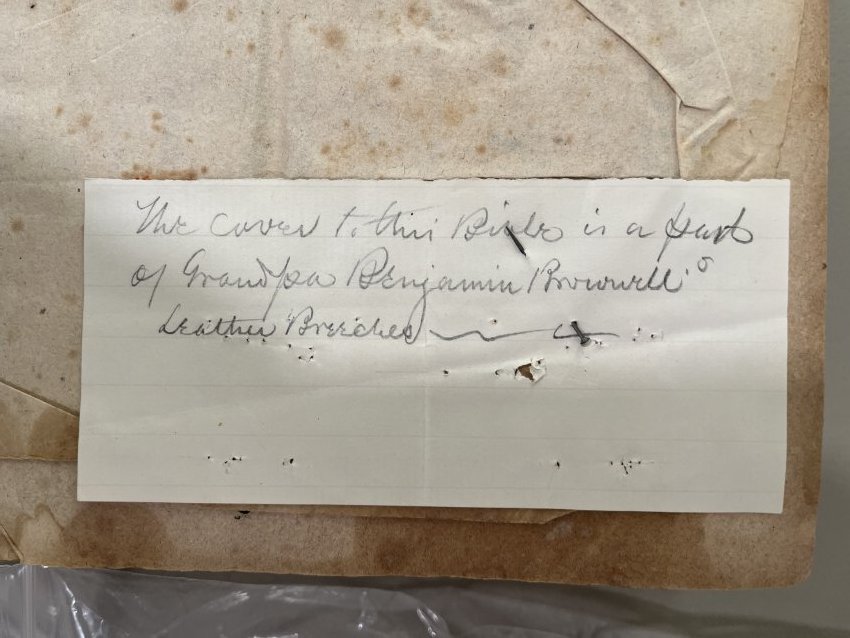 The cover to this Bible is a part
of Grandpa Benjamin Brownell's
Leather Breeches